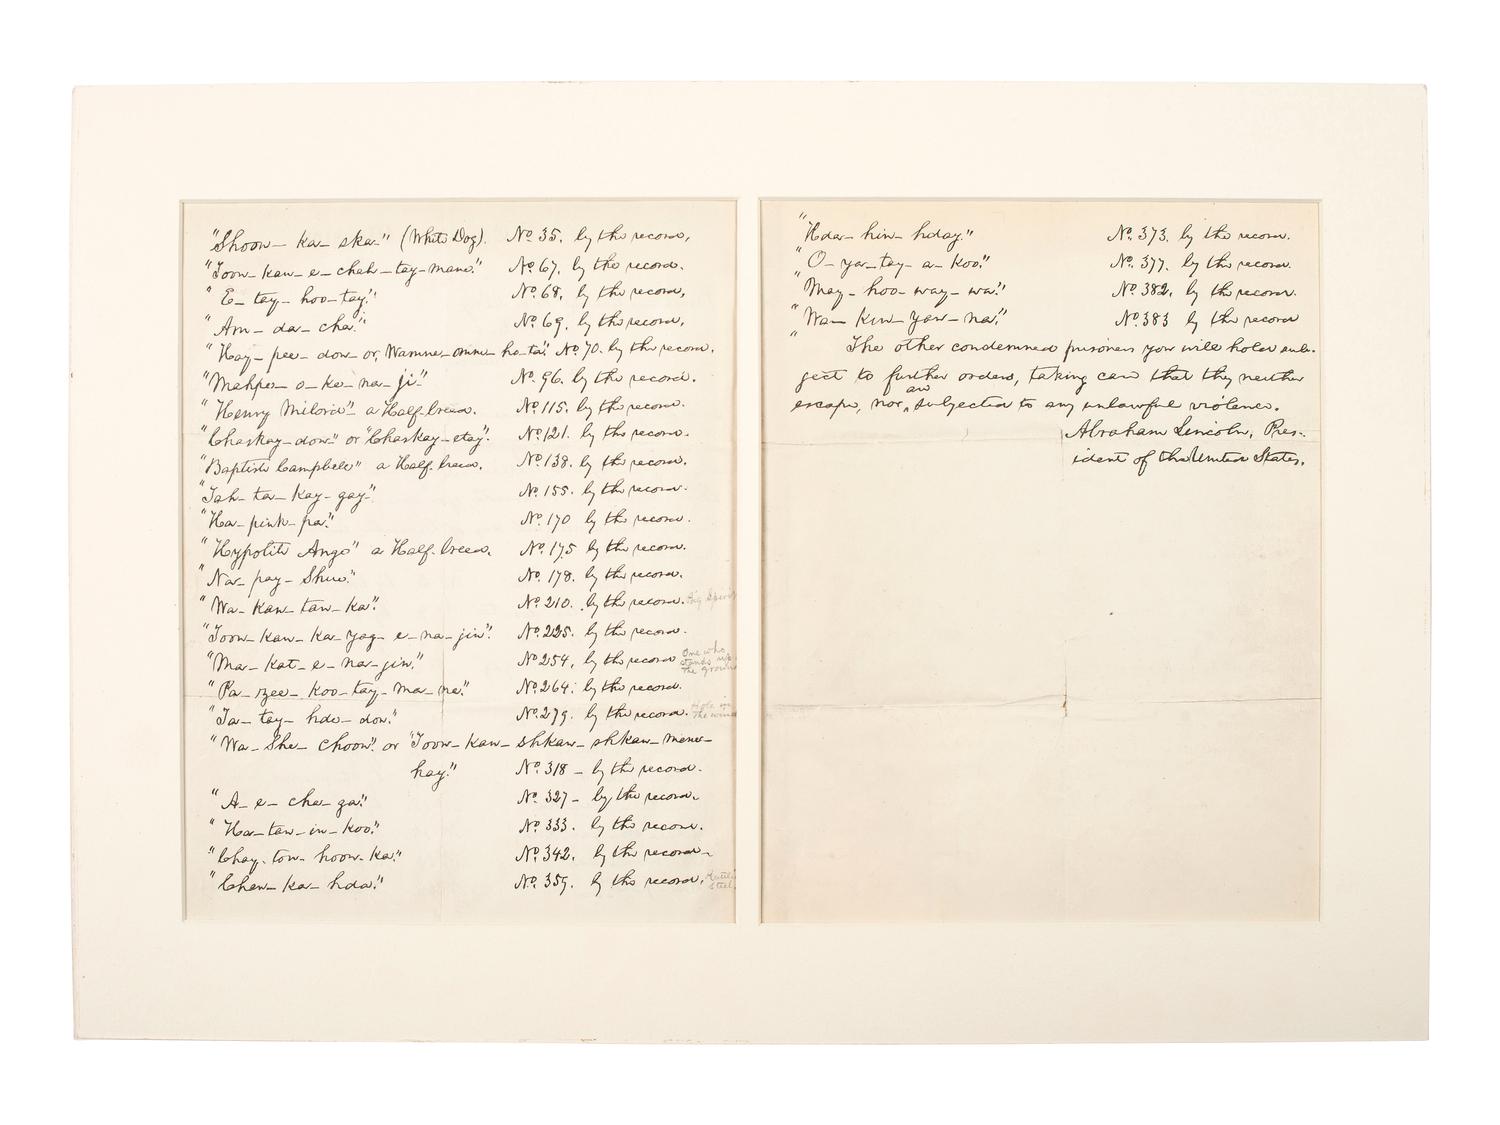 "Shoon- ka- ska-" (White Dog). No 35. by the record,
"Toon- kan- e- chah- tay- mane." No 67. by the record.
" E- tay- hoo- tay." No 68. by the record,
" Am- da- cha." No 69. by the record,
" Hay- pee- don- or, Wamne- omne- ho-ta." No 70. by the record.
"Mahpe- o- ke- na- ji." No 96. by the record.
"Henry Milord" a Half-breed. No 115. by the record.
"Chaskay- don" or "Chaskay- etay." No 121. by the record.
"Baptiste Campbell" a Half-breed. No 138. by the record.
"Tah- ta- kay- gay." No 155. by the record.
"Ha- pink- pa." No 170 by the record.
"Hypolite Ange" a Half-breed. No 175 by the record.
"Na- pay- Shue." No 178. by the record.
"Wa- kan- tan- ka." No 210. by the record. Big Spirit
"Toon- kan- ka- yag- e- na- jin." No 225. by the record.
"Ma- kat- e- na- jin." No 254, by the record One who stands up the ground
"Pa- zee- koo- tay- ma- ne." No 264. by the record.
"Ta- tay- hde- don." No 279. by the record. the wind
"Wa- She- choon" or "Toon- kan- shkan- shkan- mene-
hay." No 318 - by the record.
"A- e- cha- ga." No 327 - by the record.
"Ha- tan- in- koo." No 333. by the record.
"Chay- ton- hoon- ka." No 342. by the record-
"Chan- ka- hda." No 359. by the record.
"Hda- hin- hday." No 373. by the record.
"O- ya- tay- a- koo." No 377. by the record.
"May- hoo- way- wa." No 382. by the record.
"Wa- kin- yan- na." No 383 by the record
" The other condemned prisoners you will hold sub-
ject to further orders, taking care that they neither
escape, nor are subjected to any unlawful violence.
Abraham Lincoln, Pres-
ident of the United States.